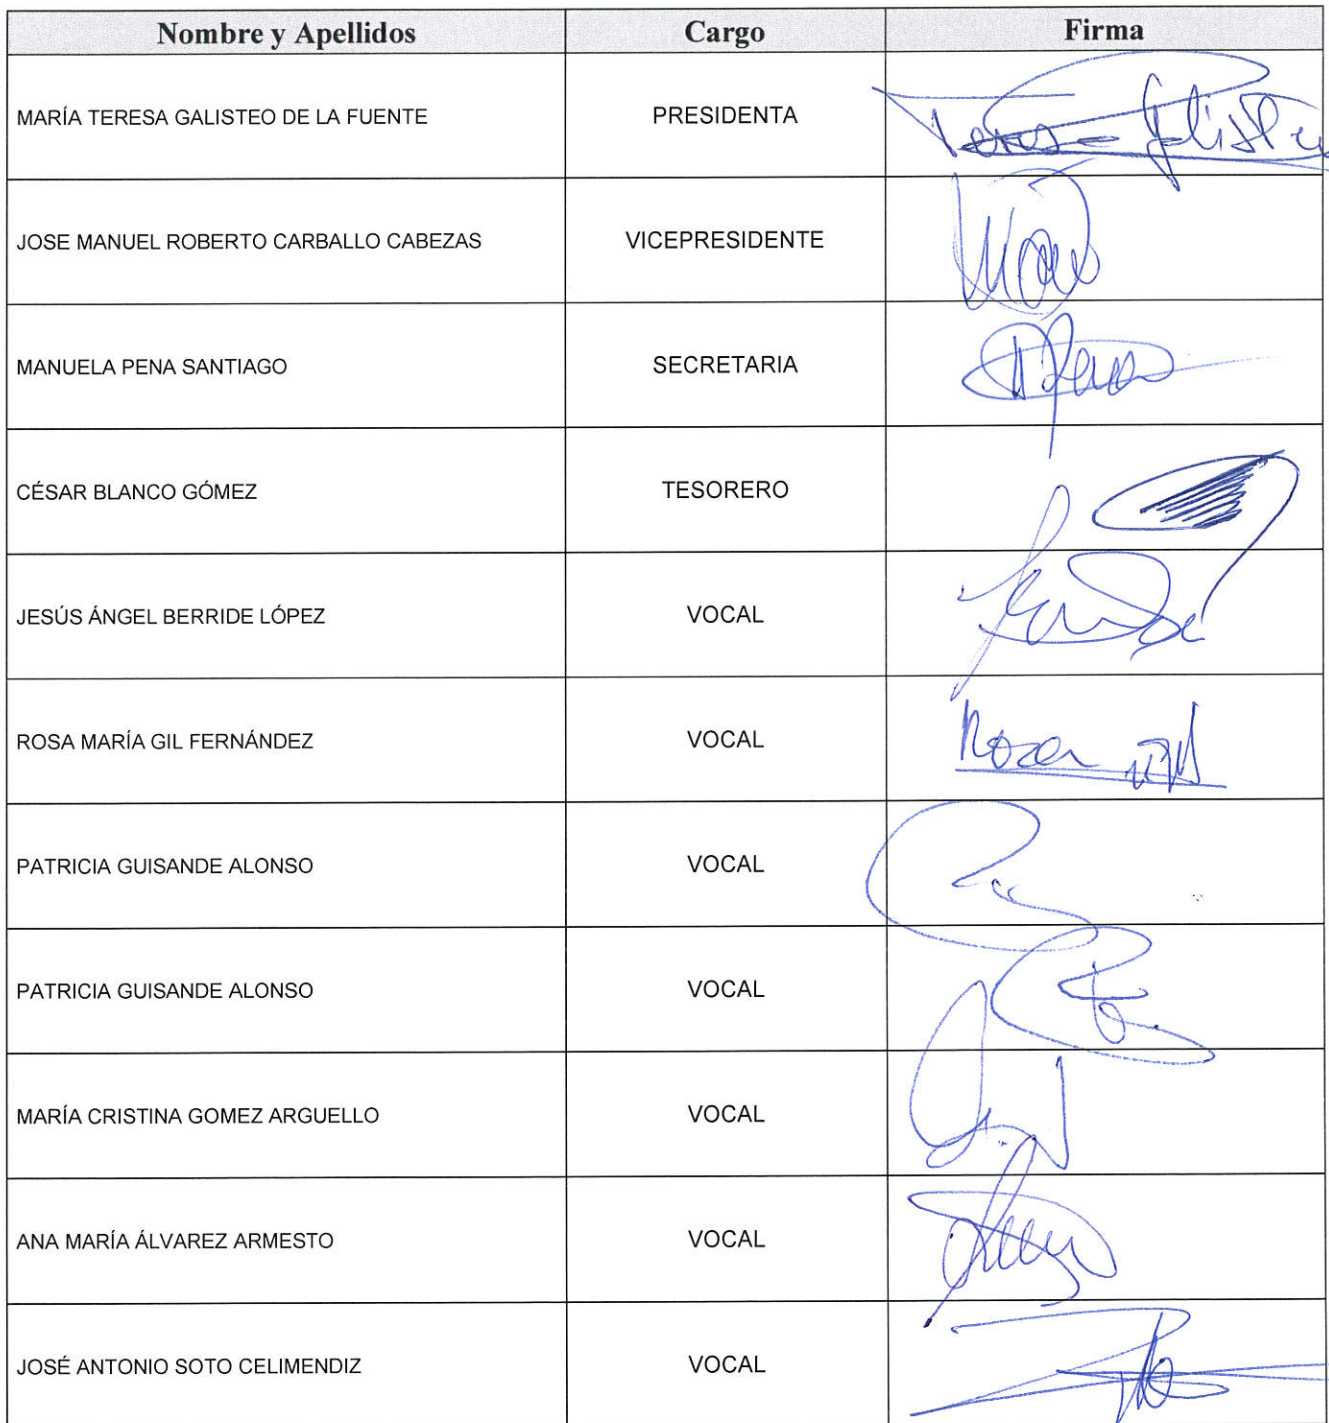 Nombre y Apellidos Cargo Firma
MARÍA TERESA GALISTEO DE LA FUENTE PRESIDENTA Teresa Galisteo
JOSE MANUEL ROBERTO CARBALLO CABEZAS VICEPRESIDENTE
MANUELA PENA SANTIAGO SECRETARIA
CÉSAR BLANCO GÓMEZ TESORERO
JESÚS ÁNGEL BERRIDE LÓPEZ VOCAL
ROSA MARÍA GIL FERNÁNDEZ VOCAL Rosa
PATRICIA GUISANDE ALONSO VOCAL
PATRICIA GUISANDE ALONSO VOCAL
MARÍA CRISTINA GOMEZ ARGUELLO VOCAL
ANA MARÍA ÁLVAREZ ARMESTO VOCAL
JOSÉ ANTONIO SOTO CELIMENDIZ VOCAL